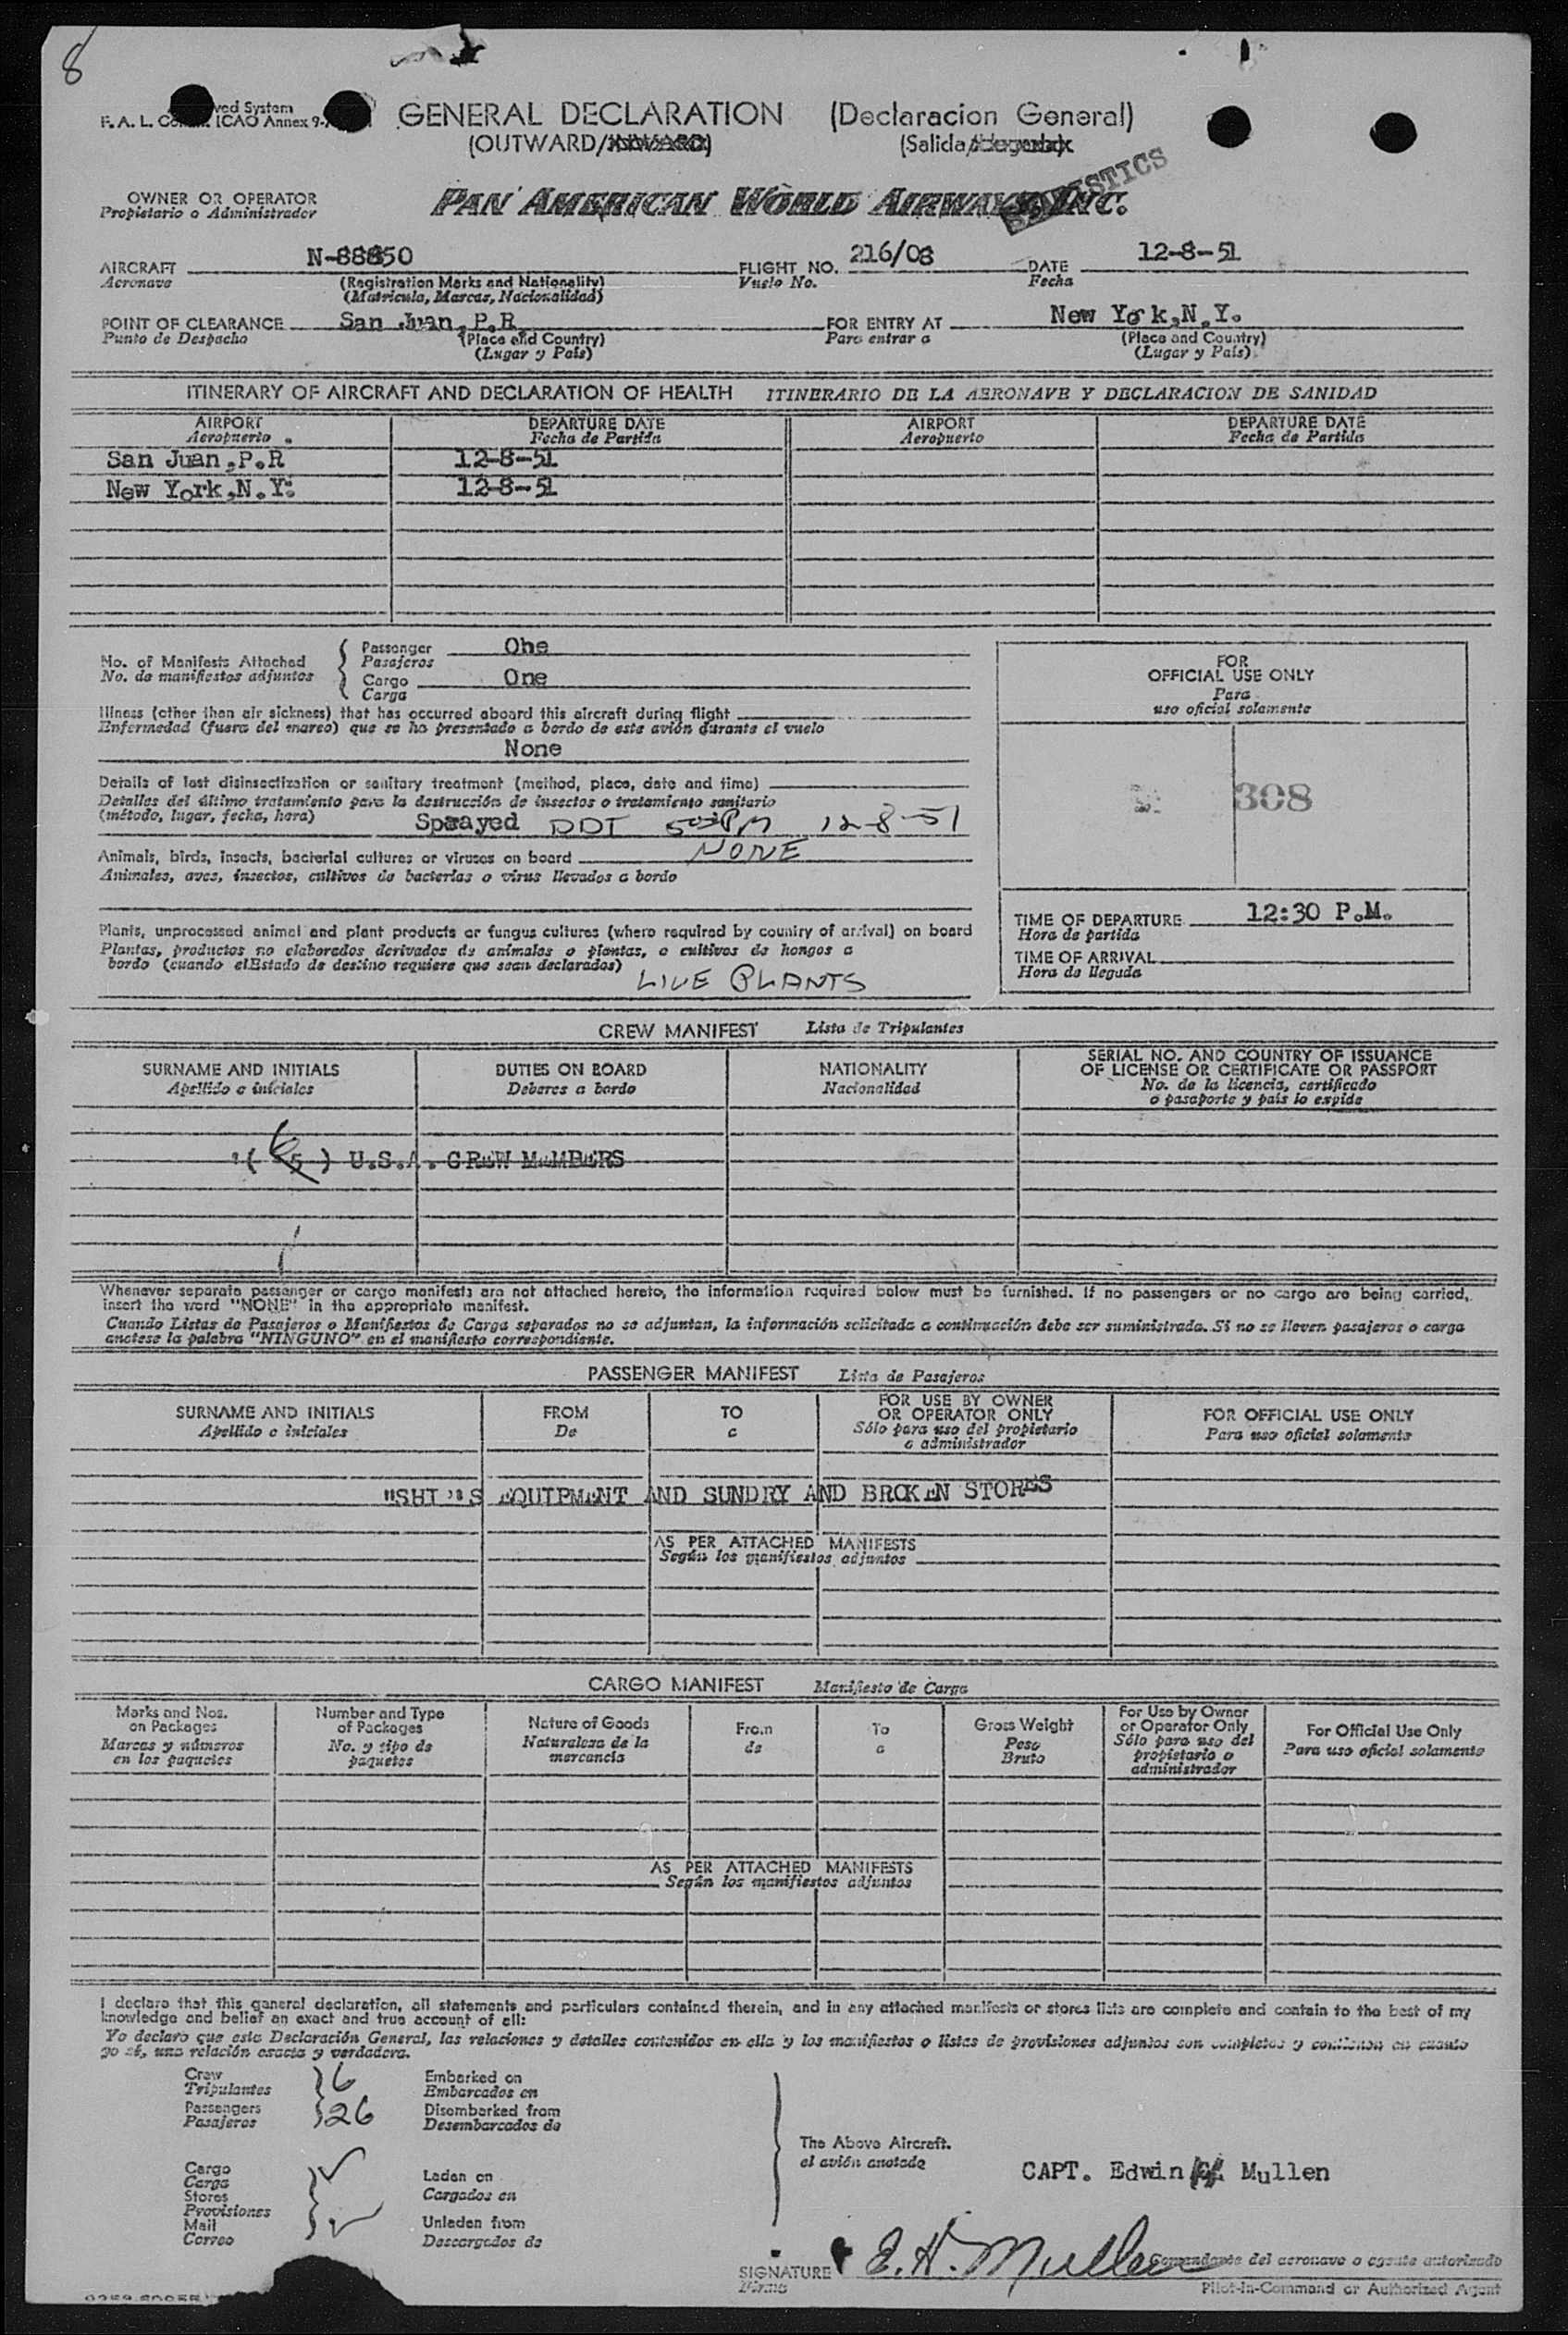 8
GENERAL DECLARATION (Declaracion General)
(OUTWARD/ (Salida/
OWNER OR OPERATOR
Propietario o Administrador
PAN AMERICAN WORLD AIRWAYS, INC.
AIRCRAFT N-88850 FLIGHT NO. 216/08 DATE 12-8-51
Aeronave (Registration Marks and Nationality) Vuelo No. Fecha
(Matricula, Marcas, Nacionalidad)
POINT OF CLEARANCE San Juan, P.R FOR ENTRY AT New York,N.Y.
Punto de Despacho (Place and Country) Para entrar a (Place and Country)
(Lugar y País) (Lugar y País)
ITINERARY OF AIRCRAFT AND DECLARATION OF HEALTH ITINERARIO DE LA AERONAVE Y DECLARACION DE SANIDAD
AIRPORT DEPARTURE DATE AIRPORT DEPARTURE DATE
Aeropuerto Fecha de Partida Aeropuerto Fecha de Partida
San Juan,P.R 12-8-51
New York,N.Y. 12-8-51
No. of Manifests Attached
No. de manifiestos adjuntos
Passenger One
Pasajeros
Cargo One
Carga
Illness (other than air sickness) that has occurred aboard this aircraft during flight
Enfermedad (fuera del mareo) que se ha presentado a bordo de este avión durante el vuelo
None
Details of last disinsectization or sanitary treatment (method, place, date and time)
Detalles del último tratamiento para la destrucción de insectos o tratamiento sanitario
(método, lugar, fecha, hora) Sprayed DDT PM 12-8-51
Animals, birds, insects, bacterial cultures or viruses on board NONE
Animales, aves, insectos, cultivos de bacterias o virus llevados a bordo
Plants, unprocessed animal and plant products or fungus cultures (where required by country of arrival) on board
Plantas, productos no elaborados derivados de animales o plantas, o cultivos de hongos a
bordo (cuando elEstado de destino requiere que sean declarados)
LIVE PLANTS
FOR
OFFICIAL USE ONLY
Para
uso oficial solamente
308
TIME OF DEPARTURE 12:30 P.M.
Hora de partida
TIME OF ARRIVAL
Hora de llegada
CREW MANIFEST Lista de Tripulantes
SURNAME AND INITIALS DUTIES ON BOARD NATIONALITY SERIAL NO. AND COUNTRY OF ISSUANCE
OF LICENSE OR CERTIFICATE OR PASSPORT
Apellido e iniciales Deberes a bordo Nacionalidad No. de la licencia, certificado
o pasaporte y país lo expide
"( 6 5 ) U.S.A. CREW MEMBERS
Whenever separate passenger or cargo manifests are not attached hereto, the information required below must be furnished. If no passengers or no cargo are being carried,
insert the word "NONE" in the appropriate manifest.
Cuando Listas de Pasajeros o Manifiestos de Carga separados no se adjuntan, la información solicitada a continuación debe ser suministrada. Si no se llevan pasajeros o carga
anotese la palabra "NINGUNO" en el manifiesto correspondiente.
PASSENGER MANIFEST Lista de Pasajeros
SURNAME AND INITIALS FROM TO FOR USE BY OWNER
OR OPERATOR ONLY FOR OFFICIAL USE ONLY
Apellido e iniciales De a Sólo para uso del propietario
o administrador Para uso oficial solamente
"SHI"S EQUIPMENT AND SUNDRY AND BROKEN STORES
AS PER ATTACHED MANIFESTS
Según los manifiestos adjuntos
CARGO MANIFEST Manifiesto de Carga
Marks and Nos.
on Packages
Marcas y números
en los paquetes
Number and Type
of Packages
No. y tipo de
paquetes
Nature of Goods
Naturaleza de la
mercancía
From
de
To
a
Gross Weight
Peso
Bruto
For Use by Owner
or Operator Only
Sólo para uso del
propietario o
administrador
For Official Use Only
Para uso oficial solamente
AS PER ATTACHED MANIFESTS
Según los manifiestos adjuntos
I declare that this general declaration, all statements and particulars contained therein, and in any attached manifests or stores lists are complete and contain to the best of my
knowledge and belief an exact and true account of all:
Yo declaro que esta Declaración General, las relaciones y detalles contenidos en ella y los manifiestos o listas de provisiones adjuntos son completos y contienen en cuanto
yo sé, una relación exacta y verdadera.
Crew 6 Embarked on
Tripulantes Embarcados en
Passengers 26 Disembarked from
Pasajeros Desembarcados de
The Above Aircraft.
el avión anotado
Cargo Laden on
Carga Cargados en
Stores
Provisiones
Mail Unladen from
Correo Descargados de
CAPT. Edwin Mullen
SIGNATURE E. H. Mullen
Firma
Comandante del aeronave o agente autorizado
Pilot-in-Command or Authorized Agent